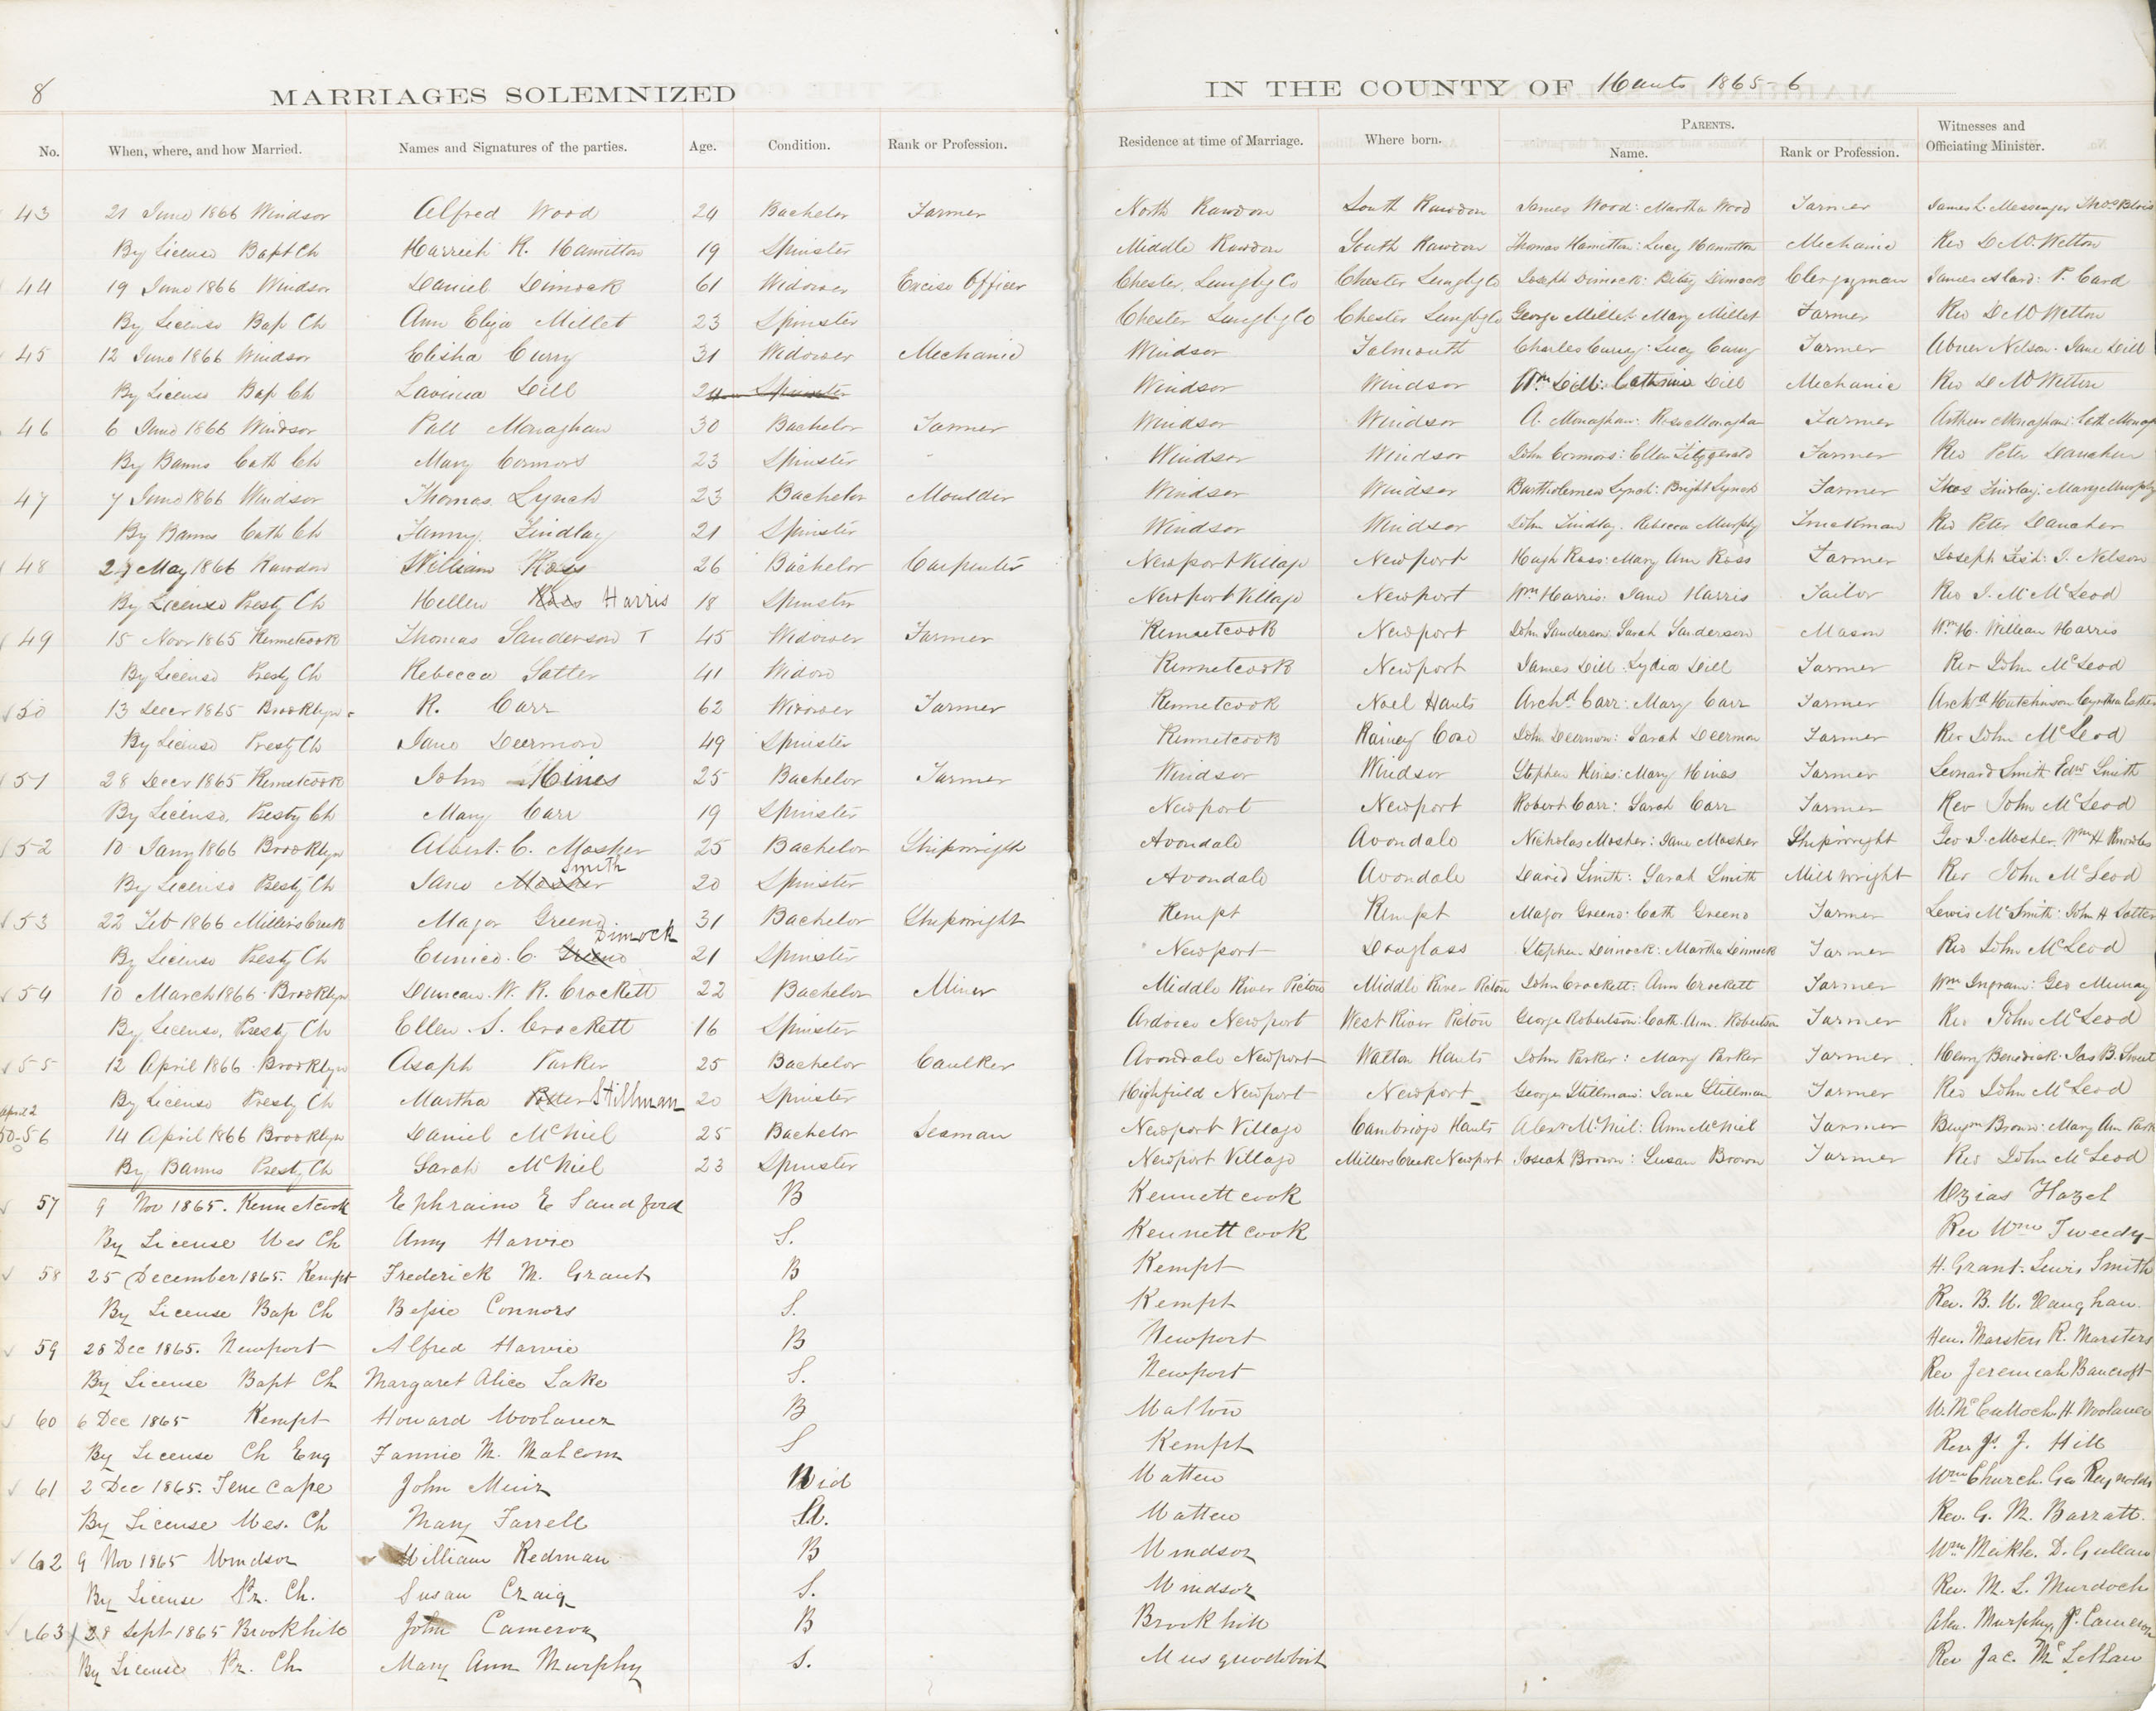 8
MARRIAGES SOLEMNIZED IN THE COUNTY OF Hants 1865-6
No. When, where, and how Married. Names and Signatures of the parties. Age. Condition. Rank or Profession. Residence at time of Marriage. Where born. PARENTS. Name. Rank or Profession. Witnesses and Officiating Minister.
43 21 June 1866 Windsor Alfred Wood 24 Bachelor Farmer North Rawdon South Rawdon James Wood: Martha Wood Farmer James L. Messenger Thos Blois
By License Bapt Ch Harrieh R. Hamilton 19 Spinster Middle Rawdon South Rawdon Thomas Hamilton: Lucy Hamilton Mechanic Rev D M Welton
44 19 June 1866 Windsor Daniel Dimock 61 Widower Excise Officer Chester, Lunglg Co Chester Lunglg Co Joseph Dimock: Betsy Dimock Clergyman James Aland: P. Card
By License Bap Ch Ann Eliza Millet 23 Spinster Chester Lunglg Co Chester Lunglg Co George Millet Mary Millet Farmer Rev D M Welton
45 12 June 1866 Windsor Elisha Curry 31 Widower Mechanic Windsor Falmouth Charles Curry: Lucy Curry Farmer Abner Nelson. Jane Dill
By License Bap Ch Lavinia Dill 24 Spinster Windsor Windsor Wm Dill: Catherine Dill Mechanic Rev D M Welton
46 6 June 1866 Windsor Patt Monaghan 30 Bachelor Farmer Windsor Windsor A. Monaghan: Rose Monaghan Farmer Arthur Monaghan: Cath Monagh
By Banns Cath Ch Mary Connors 23 Spinster Windsor Windsor John Connors: Ellen Fitzgerald Farmer Rev Peter Danaher
47 7 June 1866 Windsor Thomas Lynch 23 Bachelor Moulder Windsor Windsor Bartholemew Lynch: Bright Lynch Farmer Thos Findlay: Mary Murphy
By Banns Cath Ch Fanny Findlay 21 Spinster Windsor Windsor John Findlay. Rebecca Murphy Truckman Rev Peter Danaher
48 29 May 1866 Rawdon William Ross 26 Bachelor Carpenter Newport Village Newport Hugh Ross: Mary Ann Ross Farmer Joseph Fish: J. Nelson
By License Presty Ch Hellen Ross Harris 18 Spinster Newport Village Newport Wm Harris: Jane Harris Tailor Rev J. M McLeod
49 15 Novr 1865 Kennetcook Thomas Sanderson T 45 Widower Farmer Kennetcook Newport John Sanderson: Sarah Sanderson Mason Wm H. William Harris
By License Presty Ch Rebecca Salter 41 Widow Kennetcook Newport James Dill. Lydia Dill Farmer Rev John McLeod
50 13 Decr 1865 Brooklyn R. Carr 62 Widower Farmer Kennetcook Noel Hants Archd Carr: Mary Carr Farmer Archd Hutchinson Cynthia
By License Presty Ch Jane Deermon 49 Spinster Kennetcook Rainey Cove John Deermon: Sarah Deermon Farmer Rev John McLeod
51 28 Decr 1865 Kennetcook John Hines 25 Bachelor Farmer Windsor Windsor Stephen Hines: Mary Hines Farmer Leonard Smith Edw Smith
By License. Presty Ch Mary Carr 19 Spinster Newport Newport Robert Carr: Sarah Carr Farmer Rev John McLeod
52 10 Jany 1866 Brooklyn Albert. C. Mosher 25 Bachelor Shipwright Avondale Avondale Nicholas Mosher: Jane Mosher Shipwright Geo J. Mosher. Wm H Knowles
By License Presty Ch Jane Mosher Smith 20 Spinster Avondale Avondale David Smith: Sarah Smith Millwright Rev John McLeod
53 22 Feb 1866 Millers Creek Major Greeno 31 Bachelor Shipwright Kempt Kempt Major Greeno: Cath Greeno Farmer Lewis M Smith: John H Salter
By License Presty Ch Eunice. C. Greeno Dimock 21 Spinster Newport Douglass Stephen Dimock: Martha Dimock Farmer Rev John McLeod
54 10 March 1866 Brooklyn Duncan. W. R. Crockett 22 Bachelor Miner Middle River Picton Middle River Picton John Crockett: Ann Crockett Farmer Wm Ingram: Geo Murray
By License. Presty Ch Ellen S. Crockett 16 Spinster Ardoise Newport West River Picton George Robertson: Cath. Ann. Robertson Farmer Rev John McLeod
55 12 April 1866 Brooklyn Asaph Parker 25 Bachelor Caulker Avondale Newport Walton Hants John Parker: Mary Parker Farmer Henry Benedick. Jas B. Sweet
By License Presty Ch Martha Stillman 20 Spinster Highfield Newport Newport George Stillman: Jane Stillman Farmer Rev John McLeod
April 2
50-56 14 April 1866 Brooklyn Daniel McNiel 25 Bachelor Seaman Newport Village Cambridge Hants Alexr McNiel: Ann McNiel Farmer Benjn Brown: Mary Ann Park
By Banns Presty Ch Sarah McNiel 23 Spinster Newport Village Millers Creek Newport Josiah Brown: Susan Brown Farmer Rev John McLeod
57 9 Nov 1865. Kennetcook Ephraim E Sandford B Kennettcook Uzias Hazel
By License Wes Ch Amy Harvie S. Kennettcook Rev Wm Tweedy
58 25 December 1865. Kempt Frederick M. Grant B Kempt H. Grant. Lewis Smith
By License Bap Ch Bessie Connors S. Kempt Rev. B. U. Vaughan.
59 28 Dec 1865. Newport Alfred Harvie B Newport Hen. Marsten R. Marsters
By License Bapt Ch Margaret Alice Lake S. Newport Rev Jeremiah Bancroft
60 6 Dec 1865 Kempt Howard Woolaver B Walton W. McCulloch H Woolaver
By License Ch Eng Fannie M. Malcom S Kempt Rev Js. J. Hill
61 2 Dec 1865. Tene Cape John Muir Wid Walten Wm Church. Geo Reynolds
By License Wes. Ch Mary Farrell Walten Rev. G. M. Barratt.
62 9 Nov 1865 Windsor William Redman B Windsor Wm Meikle. D. Gullan
By License Pr. Ch. Susan Craig S. Windsor Rev. M. L. Murdoch
63 28 Sept 1865 Brookhill John Cameron B Brookhill Alex. Murphy, J. Cameron
By License Pr. Ch Mary Ann Murphy S. Musquodoboit Rev Jac. McLellan